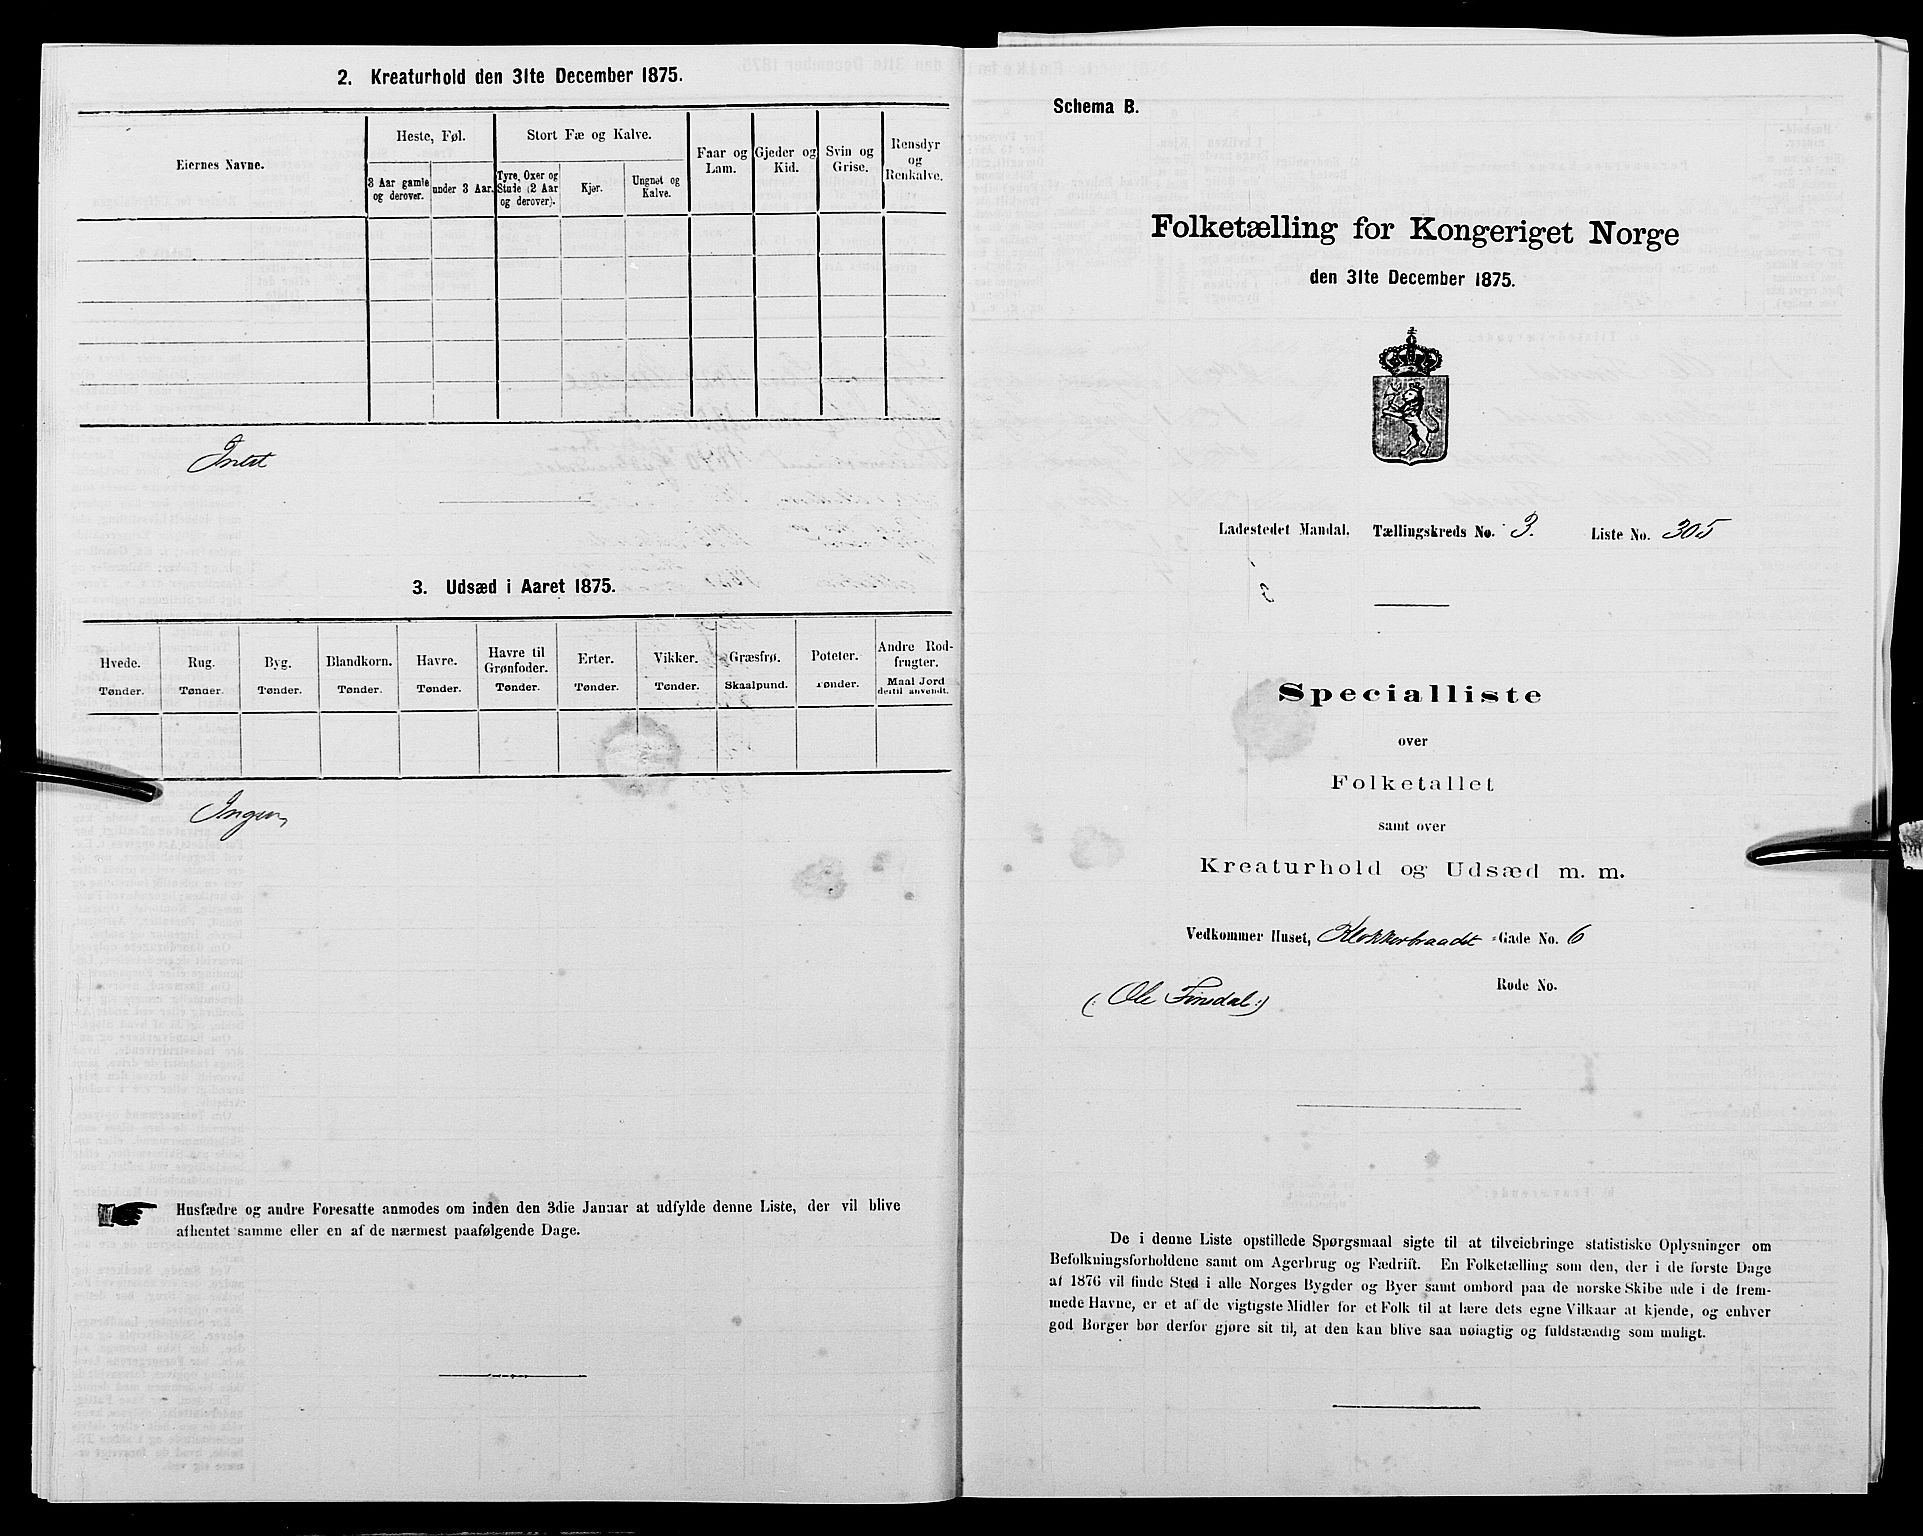 2. Kreaturhold den 31te December 1875.
Eiernes Navne.
Heste, Føl.
Stort Fæ og Kalve.
Faar og Lam.
Gjeder og Kid.
Svin og Grise.
Rensdyr og Renkalve.
3 Aar gamle og derover.
under 3 Aar.
Tyre, Oxer og Stude (2 Aar og derover).
Kjør.
Ungnøt og Kalve.
Intet
3. Udsæd i Aaret 1875.
Hvede. Rug. Byg. Blandkorn. Havre. Havre til Grønfoder. Erter. Vikker. Græsfrø. Poteter. Andre Rodfrugter.
Tønder. Tønder. Tønder. Tønder. Tønder. Tønder. Tønder. Tønder. Skaalpund. Tønder. Maal Jord dertil anvendt.
Ingen
Husfædre og andre Foresatte anmodes om inden den 3die Januar at udfylde denne Liste, der vil blive
afhentet samme eller en af de nærmest paafølgende Dage.
Schema B.
Folketælling for Kongeriget Norge
den 31te December 1875.
Ladestedet Mandal. Tællingskreds No. 3. Liste No. 305
Specialliste
over
Folketallet
samt over
Kreaturhold og Udsæd m. m.
Vedkommer Huset, Klokkerbraadet -Gade No. 6
(: Ole Finsdal :)
Rode No.
De i denne Liste opstillede Spørgsmaal sigte til at tilveiebringe statistiske Oplysninger om
Befolkningsforholdene samt om Agerbrug og Fædrift. En Folketælling som den, der i de første Dage
af 1876 vil finde Sted i alle Norges Bygder og Byer samt ombord paa de norske Skibe ude i de frem-
mede Havne, er et af de vigtigste Midler for et Folk til at lære dets egne Vilkaar at kjende, og enhver
god Borger bør derfor gjøre sit til, at den kan blive saa nøiagtig og fuldstændig som muligt.